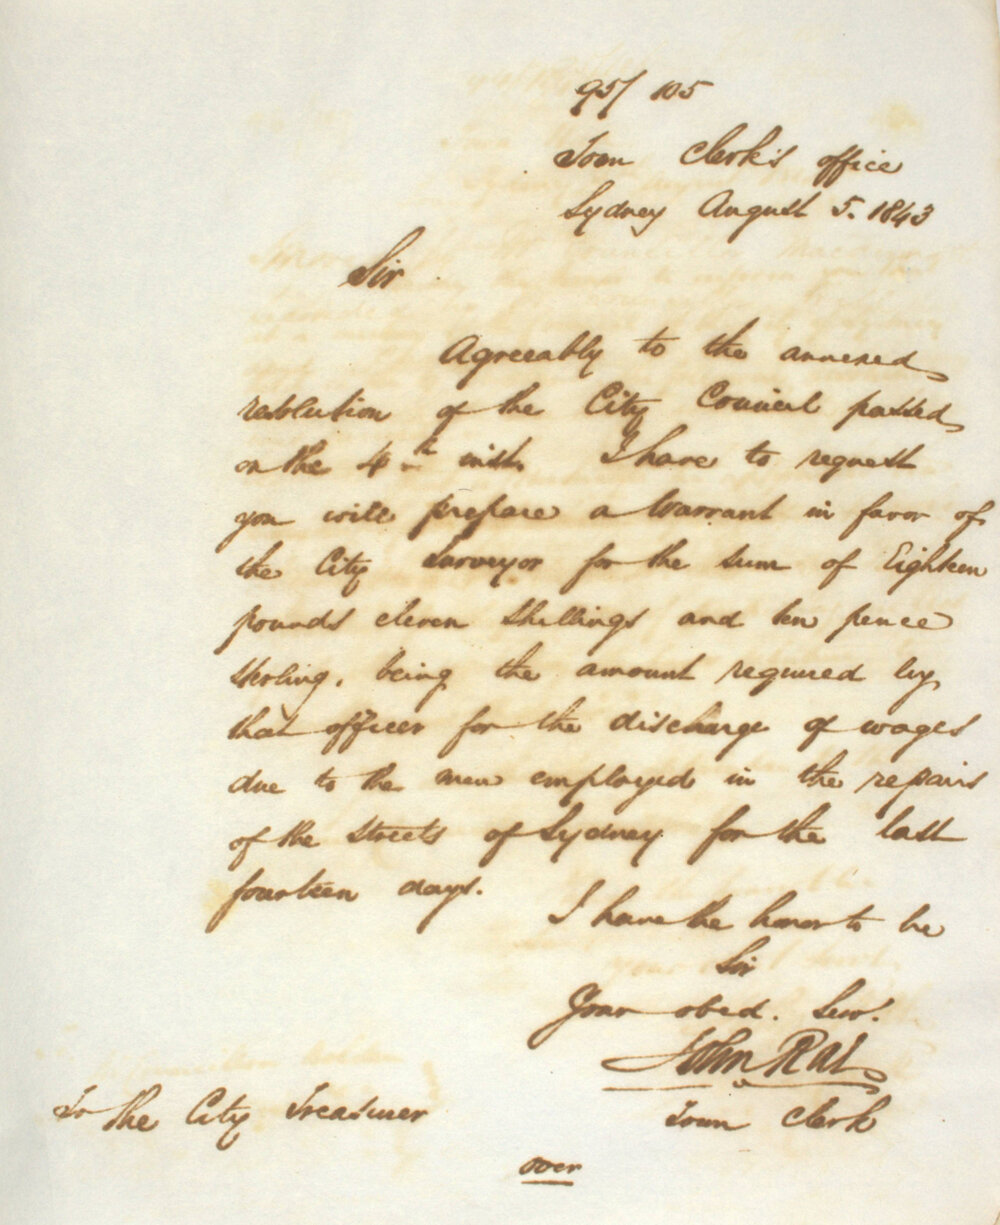 95/ 105
Town Clerk's office
Sydney August 5. 1843
Sir
Agreeably to the annexed
resolution of the City Council passed
on the 4th inst. I have to request
you will prepare a Warrant in favor of
the City Surveyor for the sum of Eighteen
pounds eleven Shillings and ten pence
Sterling. being the amount required by
that officer for the discharge of wages
due to the men employed in the repairs
of the Streets of Sydney for the last
fourteen days.
I have the honor to be
Sir
Your obed. Serv.
John Rae
Town Clerk
To the City Treasurer
over